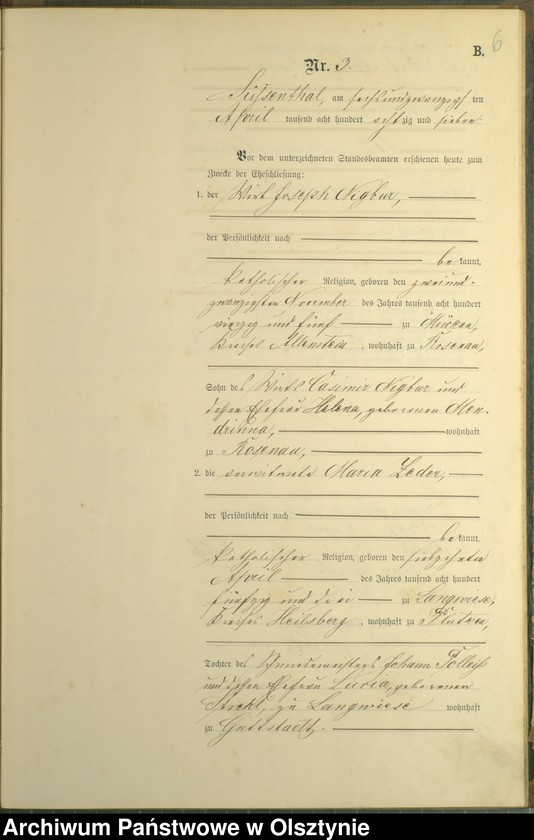 6
B.
Nr. 3.
Süssenthal, am sechsundzwanzigs ten
April tausend acht hundert achtzig und sieben
Vor dem unterzeichneten Standesbeamten erschienen heute zum
Zwecke der Eheschließung:
1. der Wirt Joseph Nigbur,
der Persönlichkeit nach
bekannt,
katholischer Religion, geboren den zweiund-
zwanzigsten November des Jahres tausend acht hundert
vierzig und fünf zu
Kreises Allenstein, wohnhaft zu Rosenau,
Sohn des Wirts Casimir Nigbur und
dessen Ehefrau Helena, geborenen Men-
drinna, wohnhaft
zu Rosenau,
2. die verwitwete Maria Leder,
der Persönlichkeit nach
bekannt,
katholischer Religion, geboren den siebzehnten
April des Jahres tausend acht hundert
fünfzig und drei zu Langwiese,
Kreises Heilsberg, wohnhaft zu
Tochter des Schmiedemeisters Johann
und dessen Ehefrau Lucia, geborenen
zu Langwiese wohnhaft
zu Guttstadt.
Archiwum Państwowe w Olsztynie